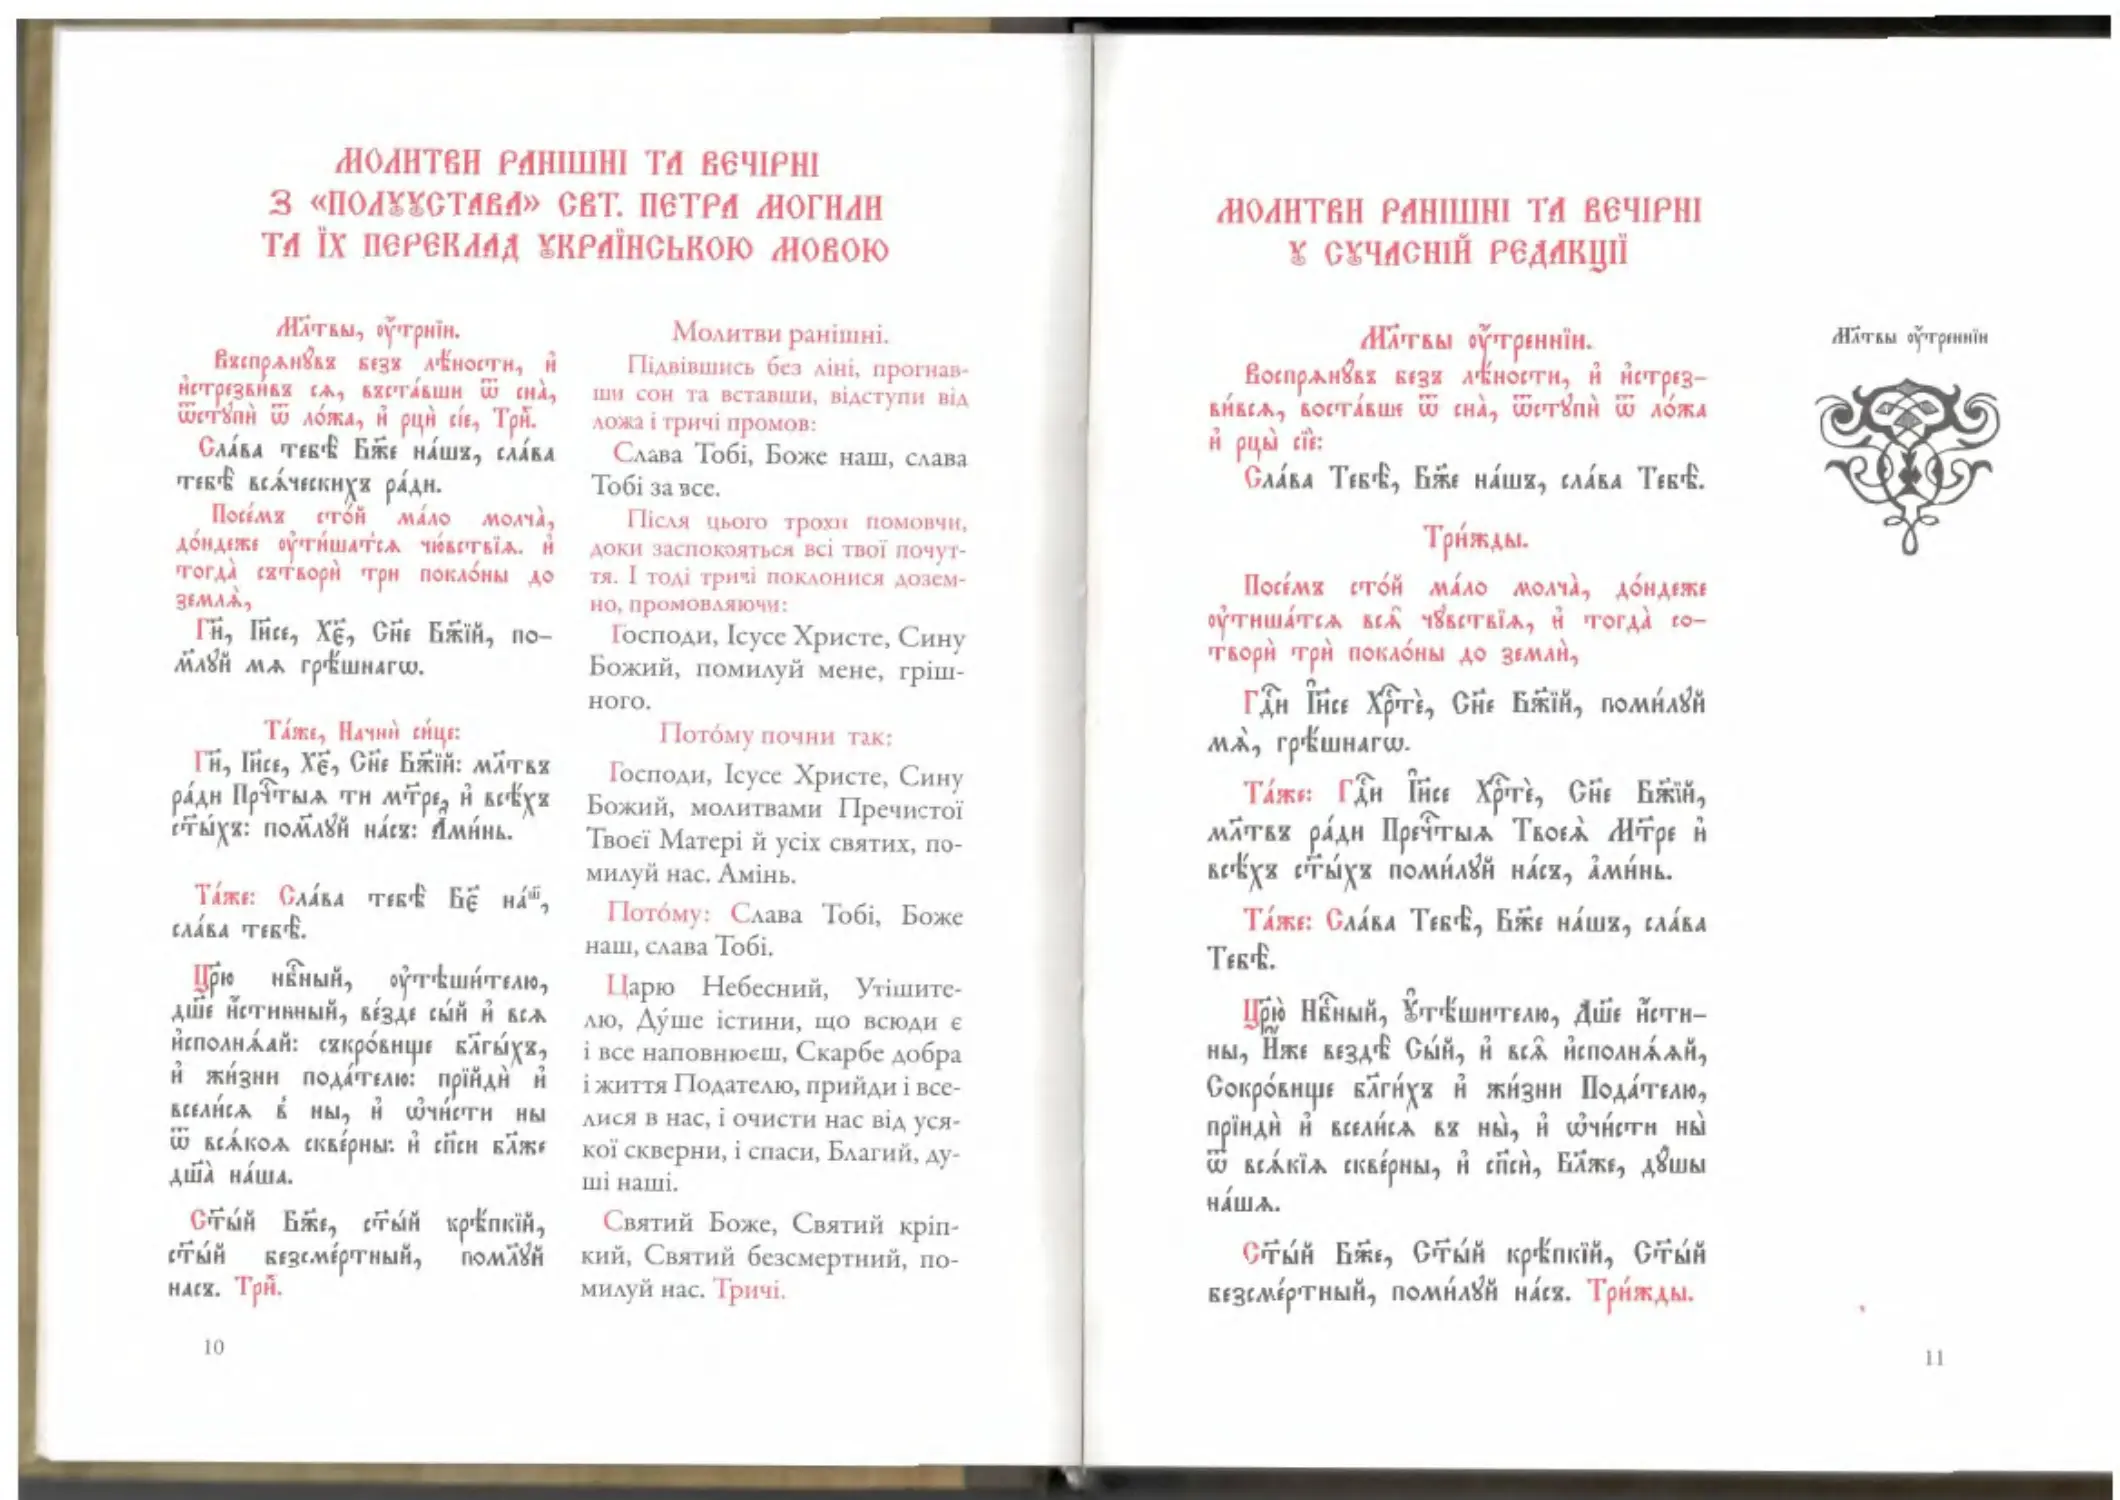 МОЛИТВИ РАНІШНІ ТА ВЕЧІРНІ
З «ПОЛУУСТАВА» СВТ. ПЕТРА МОГИЛИ
ТА ЇХ ПЕРЕКЛАД УКРАЇНСЬКОЮ МОВОЮ
Мл҃твы, ѹ҆́трнїи.
Въспрѧнꙋ́въ безъ лѣ́ности, и҆
и҆стрезви́въ сѧ, въста́вши ѿ сна̀,
ѿстꙋпѝ ѿ ло́жа, и҆ рцѝ сїе, Три̑.
Сла́ва тебѣ̀ Бж҃е на́шъ, сла́ва
тебѣ̀ всѧ́ческихъ ра́ди.
Посе́мъ сто́й ма́ло молча̀,
до́ндеже ѹ҆тиша́тсѧ чю́вствїѧ. и҆
тогда̀ сътворѝ три покло́ны до
землѧ̀,
Гн҃, І҆и҃се, Хе҃, Сн҃е Бж҃їй, по-
мл҃ꙋй мѧ грѣ́шнагѡ.
Та́же, Начнѝ си́це:
Гн҃, І҆и҃се, Хе҃, Сн҃е Бж҃їй: мл҃твъ
ра́ди Прⷱ҇тыѧ ти мт҃ре, и҆ всѣ́хъ
ст҃ы́хъ: помл҃ꙋй на́съ: А҆ми́нь.
Та́же: Сла́ва тебѣ̀ Бе҃ на́ⷲ,
сла́ва тебѣ̀.
Цр҃ю нбⷭ҇ный, ѹ҆тѣши́телю,
дш҃е и҆́стинный, ве́зде сы́й и҆ всѧ
и҆сполнѧ́ѧй: съкро́вище бл҃гы́хъ,
и҆ жи́зни пода́телю: прїйдѝ и҆
всели́сѧ в̾ ны, и҆ ѡ҆чи́сти ны
ѿ всѧ́коѧ скве́рны: и҆ сп҃си бл҃же
дш҃а̀ на́ша.
Ст҃ы́й Бж҃е, ст҃ы́й крѣ́пкїй,
ст҃ы́й безсме́ртный, помл҃ꙋй
насъ. Три̑.
10
Молитви ранішні.
Підвівшись без ліні, прогнав-
ши сон та вставши, відступи від
ложа і тричі промов:
Слава Тобі, Боже наш, слава
Тобі за все.
Після цього трохи помовчи,
доки заспокояться всі твої почут-
тя. І тоді тричі поклонися дозем-
но, промовляючи:
Господи, Ісусе Христе, Сину
Божий, помилуй мене, гріш-
ного.
Пото́му почни так:
Господи, Ісусе Христе, Сину
Божий, молитвами Пречистої
Твоєї Матері й усіх святих, по-
милуй нас. Амінь.
Пото́му: Слава Тобі, Боже
наш, слава Тобі.
Царю Небесний, Утішите-
лю, Ду́ше істини, що всюди є
і все наповнюєш, Скарбе добра
і життя Подателю, прийди і все-
лися в нас, і очисти нас від уся-
кої скверни, і спаси, Благий, ду-
ші наші.
Святий Боже, Святий кріп-
кий, Святий безсмертний, по-
милуй нас. Тричі.
МОЛИТВИ РАНІШНІ ТА ВЕЧІРНІ
У СУЧАСНІЙ РЕДАКЦІЇ
Мл҃твы ѹ҆́треннїи.
Воспрѧнꙋ́въ безъ лѣ́ности, и҆ и҆стрез-
ви́всѧ, воста́вше ѿ сна̀, ѿстꙋпѝ ѿ ло́жа
и҆ рцы̀ сїѐ:
Сла́ва Тебѣ̀, Бж҃е на́шъ, сла́ва Тебѣ̀.
Три́жды.
Посе́мъ сто́й ма́ло молча̀, до́ндеже
ѹ҆тиша́тсѧ всѧ̑ чꙋ̑вствїѧ, и҆ тогда̀ со-
творѝ трѝ покло́ны до землѝ,
Гдⷭ҇и І҆и҃се Хрⷭ҇тѐ, Сн҃е Бж҃їй, поми́лꙋй
мѧ̀, грѣ́шнагѡ.
Та́же: Гдⷭ҇и І҆и҃се Хрⷭ҇тѐ, Сн҃е Бж҃їй,
мл҃твъ ра́ди Преⷱ҇тыѧ Твоеѧ̀ Мт҃ре и҆
всѣ́хъ ст҃ы́хъ поми́лꙋй на́съ, а҆ми́нь.
Та́же: Сла́ва Тебѣ̀, Бж҃е на́шъ, сла́ва
Тебѣ̀.
Цр҃ю̀ Нбⷭ҇ный, Ꙋ҆тѣ́шителю, Дш҃е и҆́сти-
ны, И҆́же вездѣ̀ Сы́й, и҆ всѧ̑ и҆сполнѧ́ѧй,
Сокро́вище бл҃ги́хъ и҆ жи́зни Пода́телю,
прїидѝ и҆ всели́сѧ въ ны̀, и҆ ѡ҆чи́сти ны̀
ѿ всѧ́кїѧ скве́рны, и҆ сп҃сѝ, Бл҃же, дꙋ́шы
на́шѧ.
Ст҃ы́й Бж҃е, Ст҃ы́й крѣ́пкїй, Ст҃ы́й
безсме́ртный, поми́лꙋй на́съ. Три́жды.
Мл҃твы ѹ҆́треннїи
11